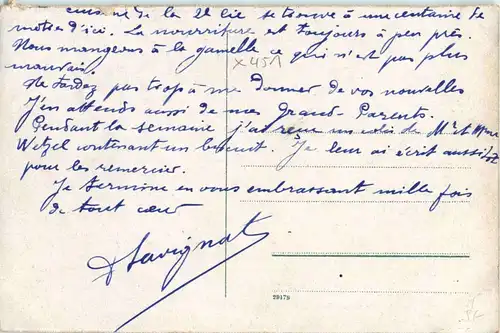 cuisine de la 2e Cie se trouve à une centaine de
mètres d'ici. La nourriture est toujours à peu près.
Nous mangeons à la gamelle ce qui n'est pas plus
mauvais.
X 451
Ne tardez pas trop à me donner de vos nouvelles
J'en attends aussi de mes Grand-Parents.
Pendant la semaine j'ai reçu un colis de Mr et Mme
Wetzel contenant un biscuit. Je leur ai écrit aussitôt
pour les remercier.
Je termine en vous embrassant mille fois
de tout cœur
Savignat
29179